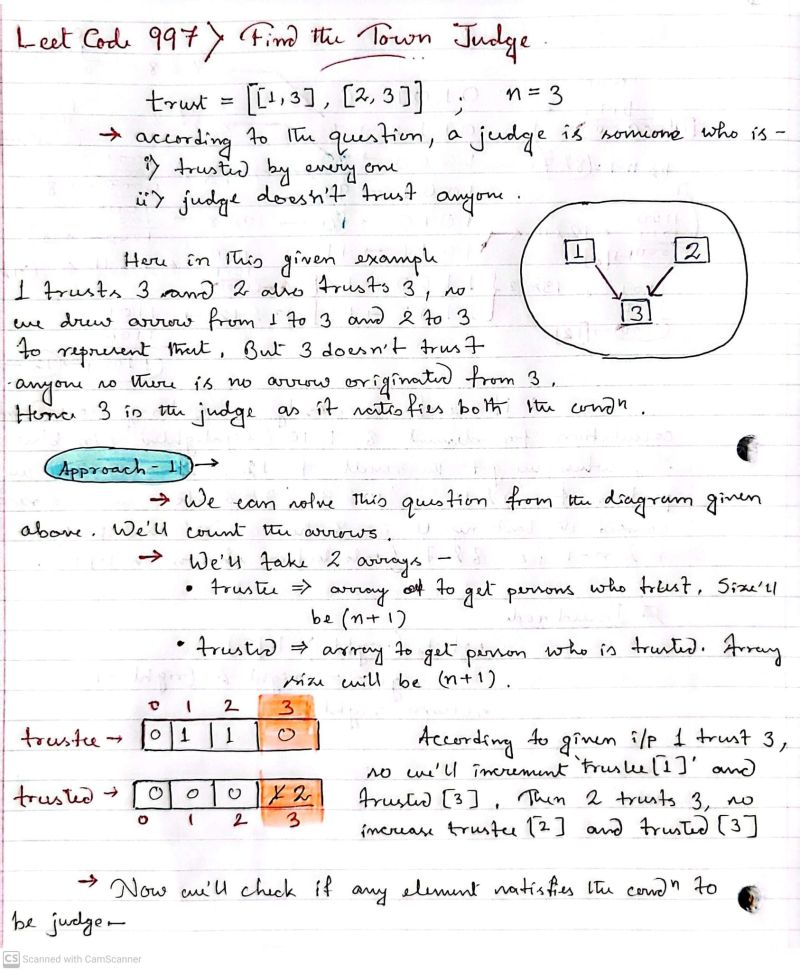 Leet Code 997 > Find the Town Judge.
trust = [[1,3], [2,3]] ; n = 3
→ according to the question, a judge is someone who is -
i> trusted by every one
ii> judge doesn't trust anyone.
1 2
3
Here in this given example
1 trusts 3 and 2 also trusts 3, so
we drew arrow from 1 to 3 and 2 to 3
to represent that, But 3 doesn't trust
anyone so there is no arrow originated from 3.
Hence 3 is the judge as it satisfies both the condⁿ.
Approach - 1: →
→ We can solve this question from the diagram given
above. We'll count the arrows.
→ We'll take 2 arrays -
• trustee ⇒ array to get persons who trust. Size'll
be (n+1)
• trusted ⇒ array to get person who is trusted. Array
size will be (n+1).
0 1 2 3
trustee → 0 1 1 0
trusted → 0 0 0 1 2
0 1 2 3
According to given i/p 1 trust 3,
so we'll increment 'trustee[1]' and
trusted [3], Then 2 trusts 3, so
increase trustee [2] and trusted [3]
→ Now we'll check if any element satisfies the condⁿ to
be judge -
CS Scanned with CamScanner